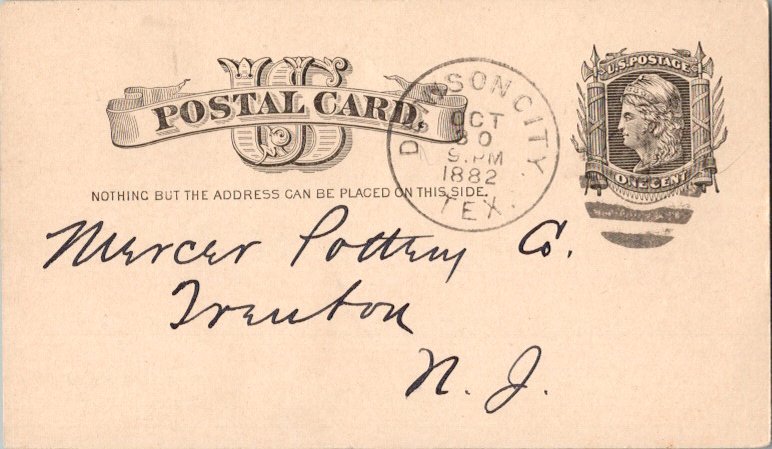 US
POSTAL CARD.
NOTHING BUT THE ADDRESS CAN BE PLACED ON THIS SIDE.
U.S. POSTAGE
ONE CENT
DENISON CITY.
OCT
30
9 PM
1882
TEX.
Mercer Pottery Co.
Trenton
N. J.